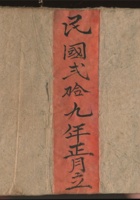 民國弍拾九年正月立